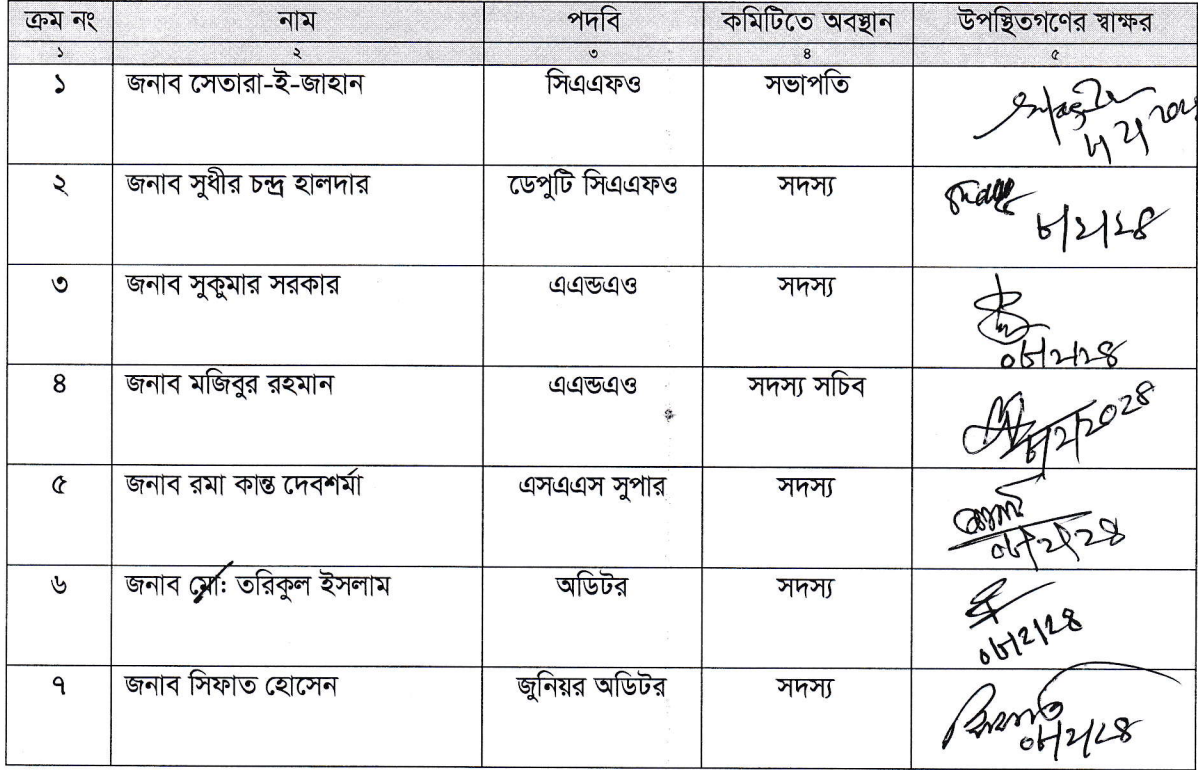 ক্রম নং নাম পদবি কমিটিতে অবস্থান উপস্থিতগণের স্বাক্ষর
১ ২ ৩ ৪ ৫
১ জনাব সেতারা-ই-জাহান সিএএফও সভাপতি
২ জনাব সুধীর চন্দ্র হালদার ডেপুটি সিএএফও সদস্য
৮/২/২৪
৩ জনাব সুকুমার সরকার এএন্ডএও সদস্য
০৮/২/২৪
৪ জনাব মজিবুর রহমান এএন্ডএও সদস্য সচিব
৮/২/২০২৪
৫ জনাব রমা কান্ত দেবশর্মা এসএএস সুপার সদস্য
০৮/২/২৪
৬ জনাব মো: তরিকুল ইসলাম অডিটর সদস্য
০৮/২/২৪
৭ জনাব সিফাত হোসেন জুনিয়র অডিটর সদস্য
০৮/২/২৪